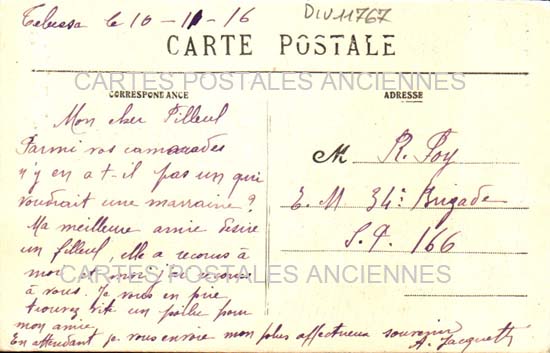 Tebessa le 10-11-16
DIV11767
CARTE POSTALE
CARTES POSTALES ANCIENNES
CORRESPONDANCE
ADRESSE
Mon cher Filleul
Parmi vos camarades
n'y en a t-il pas un qui
voudrait une marraine ?
Ma meilleure amie désire
un filleul, elle a recours à
moi et moi j'ai recours
à vous. Je vous en prie
trouvez vite un poilu pour
mon amie.
En attendant je vous envoie mon plus affectueux souvenir
A. Jacquett
M R. Foy
E. M 34e Brigade
S. P. 166
CARTES POSTALES ANCIENNES